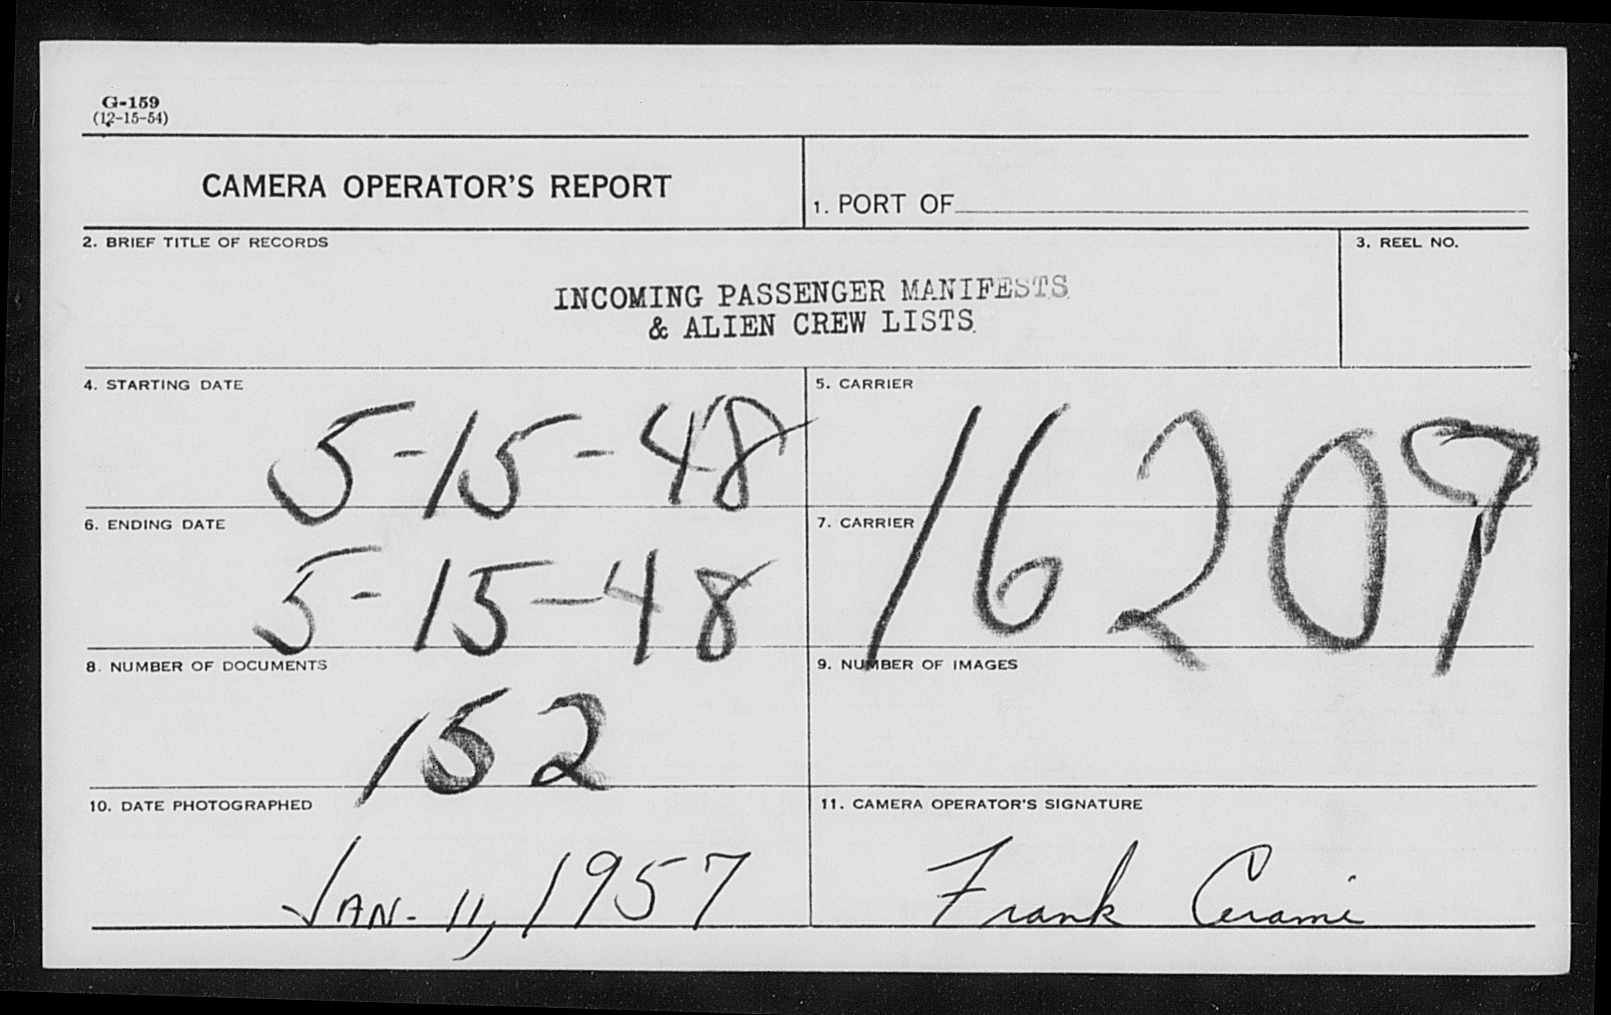 G-159
(12-15-54)
CAMERA OPERATOR'S REPORT
1. PORT OF
2. BRIEF TITLE OF RECORDS
3. REEL NO.
INCOMING PASSENGER MANIFESTS
& ALIEN CREW LISTS
4. STARTING DATE
5-15-48
5. CARRIER
16209
6. ENDING DATE
5-15-48
7. CARRIER
8. NUMBER OF DOCUMENTS
152
9. NUMBER OF IMAGES
10. DATE PHOTOGRAPHED
JAN. 11, 1957
11. CAMERA OPERATOR'S SIGNATURE
Frank Cerami